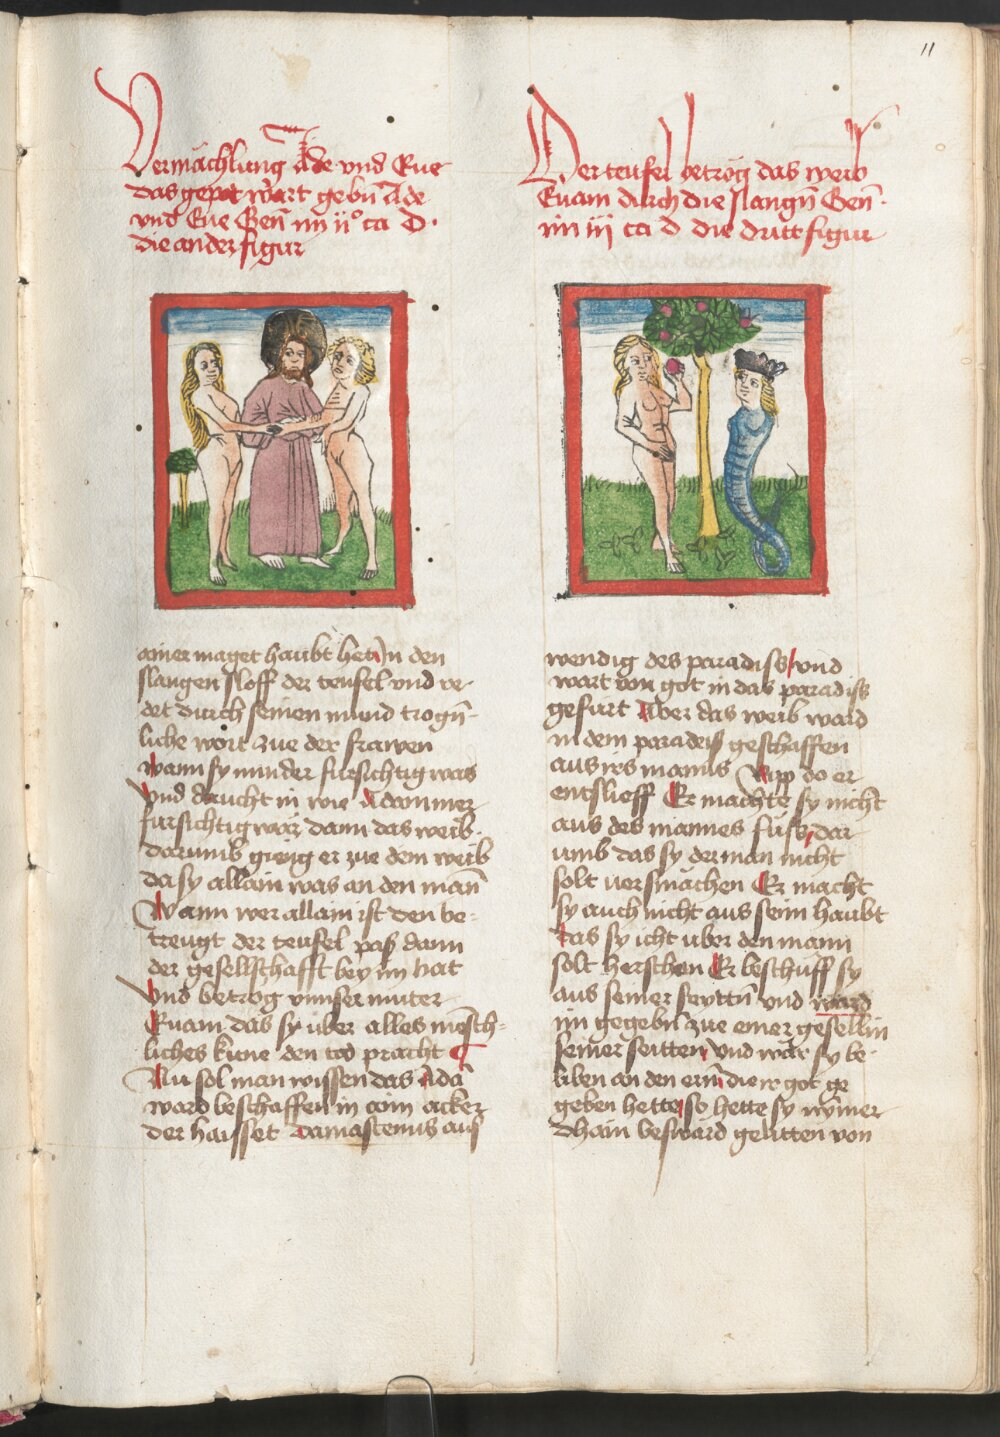 11
Vermächlung Ade vnd Eue
das gepot wart gebñ Ade
vnd Eue Geñ im ijº ca D·
die ander figur
ainer maget haubt het In den
slangen sloff der teufel vnd re-
det durch seinen mund trogñ-
liche wort zue der frawen
wann sy minder fursichtig was
Vnd daucht in wie Adam mer
fursichtig wär dann das weib.
Darumb gieng er zue dem weib
da sy allain was an den mañ
Wann wer allain ist den be-
treugt der teufel pas dann
der gesellschafft bey im hat
Vnd betrog vnnser muter
Euam das sy über alles mẽsch-
liches küne den tod pracht
Nu sol man wissen das Adã
ward beschaffen in aim acker
der haisset Damascenus aus
Der teufel betrog das weib
Euam durch die slangñ Geñ·
im iij ca d die dritt figur
wendig des paradiss vnd
wart von got in das paradiss
gefurt Aber das weib ward
in dem paradeiss geschaffen
aus irs manns Ripp do er
entslieff Er machte sy nicht
aus des mannes füss, dar
umb das sy der man nicht
solt uersmächen Er macht
sy auch nicht aus seim haubt
das sy icht uber den mann
solt herschen Er beschuff sy
aus seiner seyttñ vnd ward
im gegebñ zue einer gesellin
seiner seitten, vnd wär sy be-
liben an den erñ die ir got ge
geben hette so hette sy nymer
dhain beswärd gelitten von